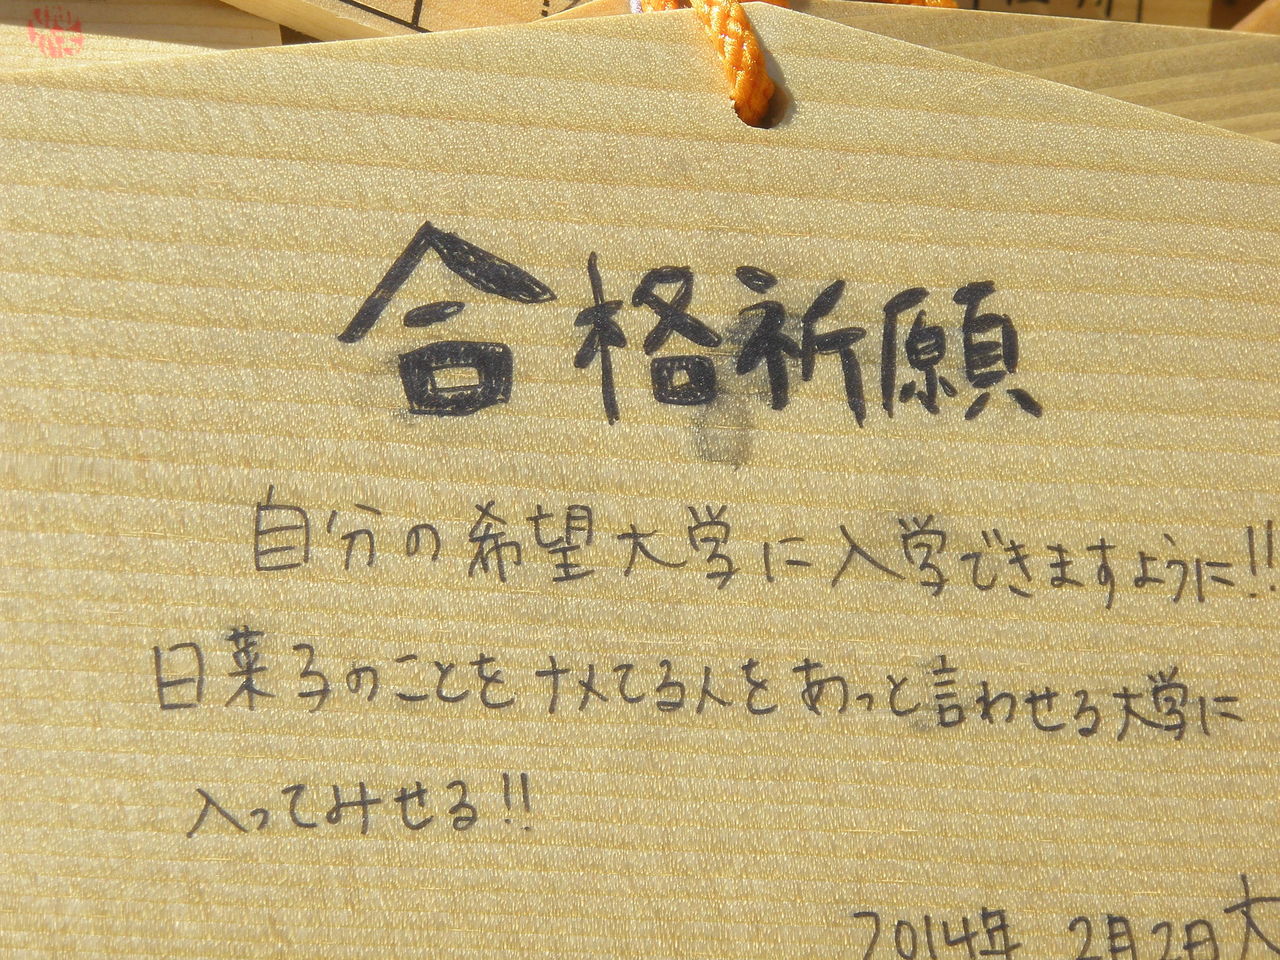 合格祈願
自分の希望大学に入学できますように!!
日菜子のことをナメてる人をあっと言わせる大学に
入ってみせる!!
2014年 2月2日